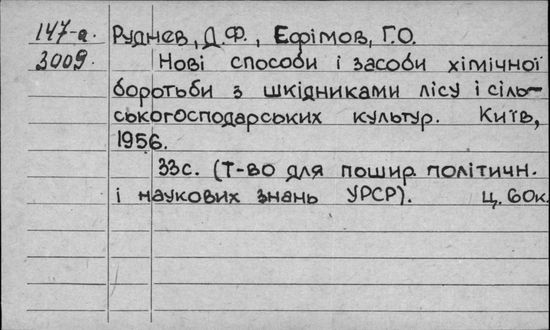 147-а. Руднєв, Д.Ф., Єфімов, Г.О.
3009. Нові способи і засоби хімічної
боротьби з шкідниками лісу і сіль-
ськогосподарських культур. Київ,
1956.
33с. (Т-во для пошир. політичн.
і наукових знань УРСР). ц. 60к.